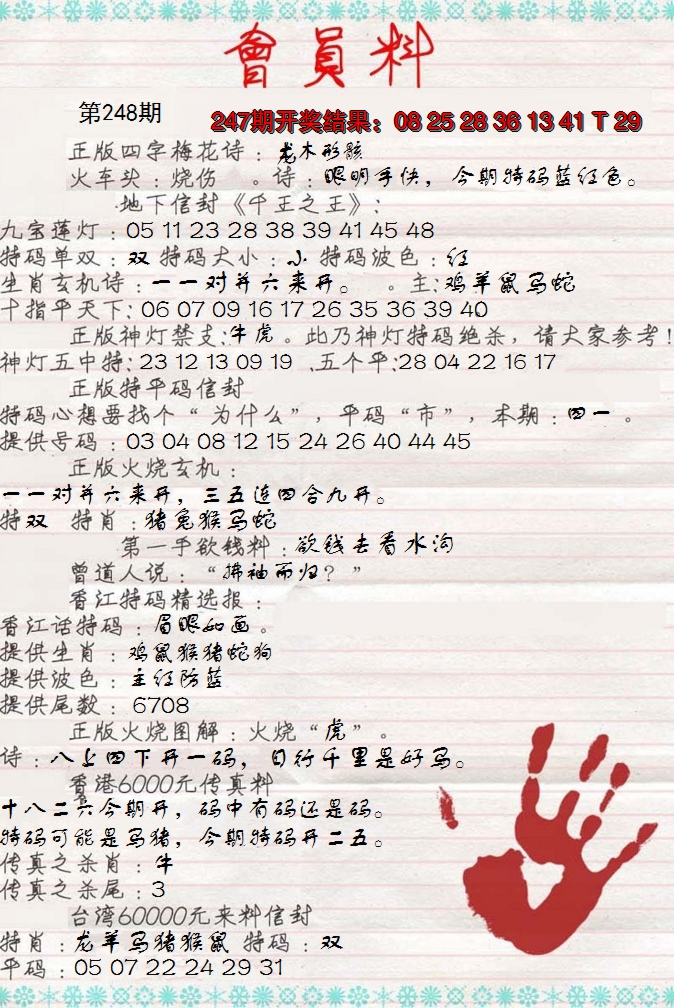 會員料
第248期
247期开奖结果：08 25 28 36 13 41 T 29
正版四字梅花诗：龙木形骸
火车头：烧伤 。诗：眼明手快，今期特码蓝红色。
.地下信封《千王之王》：
九宝莲灯：05 11 23 28 38 39 41 45 48
特码单双：双 特码大小：小 特码波色：红
生肖玄机诗：一一对并六来开。 。主：鸡羊鼠马蛇
十指平天下：06 07 09 16 17 26 35 36 39 40
正版神灯禁支：牛虎。此乃神灯特码绝杀，请大家参考！
神灯五中特：23 12 13 09 19 .五个平：28 04 22 16 17
正版特平码信封
特码心想要找个“为什么”，平码“市”，本期：四一 。
提供号码：03 04 08 12 15 24 26 40 44 45
正版火烧玄机：
一一对并六来开，三五连四合九开。
特双 特肖：猪兔猴马蛇
第一手欲钱料：欲钱去看水沟
曾道人说：“拂袖而归？”
香江特码精选报：
香江话特码：眉眼如画。
提供生肖：鸡鼠猴猪蛇狗
提供波色：主红防蓝
提供尾数：6708
正版火烧图解：火烧“虎”。
诗：八上四下开一码，日行千里是好马。
香港6000元传真料
十八二六今期开，码中有码还是码。
特码可能是马猪，今期特码开二五。
传真之杀肖：牛
传真之杀尾：3
台湾60000元来料信封
特肖：龙羊马猪猴鼠 特码：双
平码：05 07 22 24 29 31